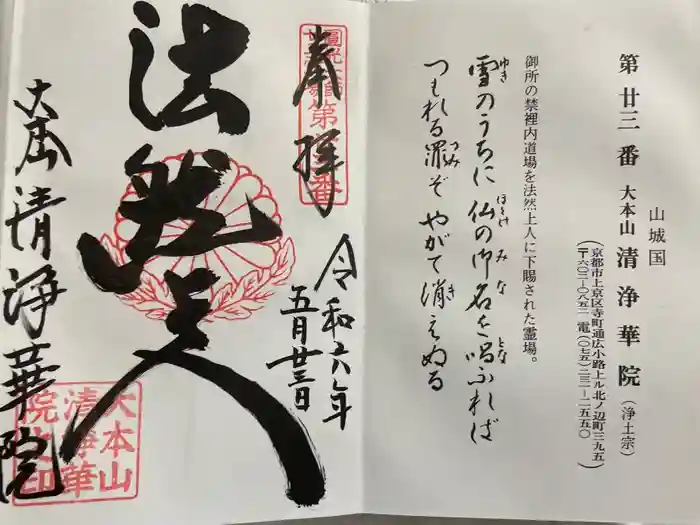 第廿三番 大本山 清浄華院(浄土宗)
山城国
(京都市上京区寺町通広小路上ル北ノ辺町三九五
〒六〇二-〇八五二 電(〇七五)二三一-二一五五〇)
御所の禁裡内道場を法然上人に下賜された霊場。
雪のうちに 仏の御名を唱ふれば
ゆき ほとけ みな とな
つもれる罪ぞ やがて消えぬる
つみ き
奉拝
令和六年
五月廿三日
法然上人
大本山清浄華院
大本山
清浄華
院之印